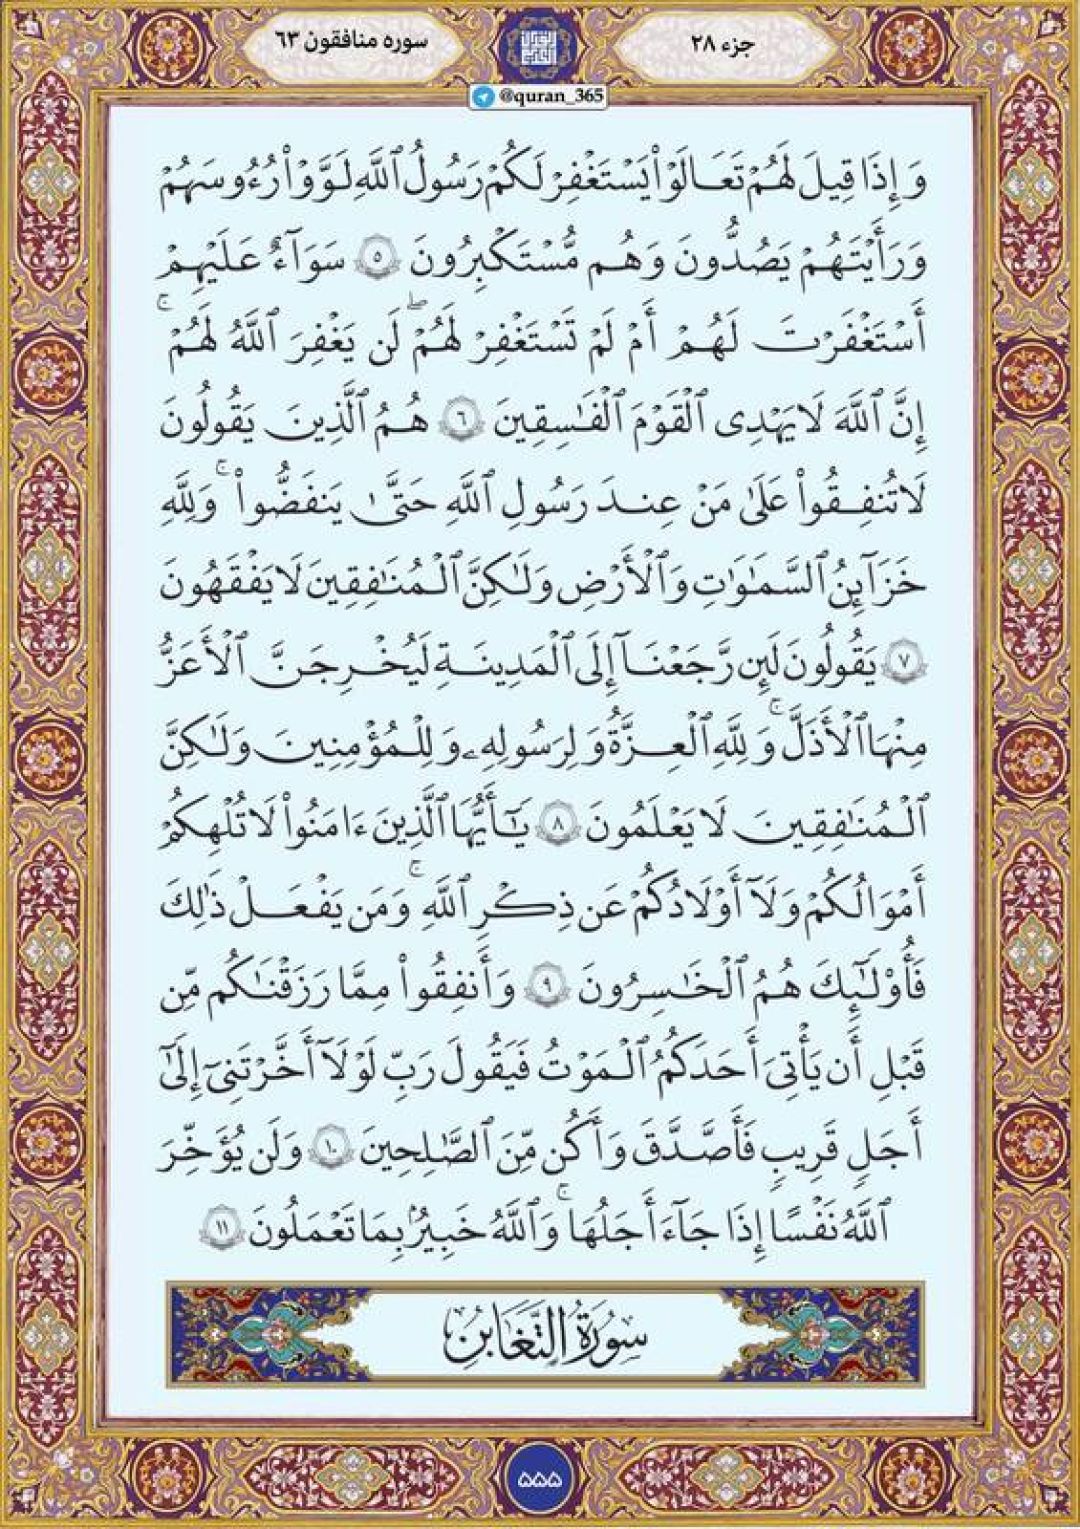 جزء ۲۸
سوره منافقون ۶۳
@quran_365
وَإِذَا قِيلَ لَهُمْ تَعَالَوْا۟ يَسْتَغْفِرْ لَكُمْ رَسُولُ ٱللَّهِ لَوَّوْا۟ رُءُوسَهُمْ
وَرَأَيْتَهُمْ يَصُدُّونَ وَهُم مُّسْتَكْبِرُونَ ۝٥ سَوَآءٌ عَلَيْهِمْ
أَسْتَغْفَرْتَ لَهُمْ أَمْ لَمْ تَسْتَغْفِرْ لَهُمْ ۖ لَن يَغْفِرَ ٱللَّهُ لَهُمْ ۚ
إِنَّ ٱللَّهَ لَا يَهْدِى ٱلْقَوْمَ ٱلْفَـٰسِقِينَ ۝٦ هُمُ ٱلَّذِينَ يَقُولُونَ
لَا تُنفِقُوا۟ عَلَىٰ مَنْ عِندَ رَسُولِ ٱللَّهِ حَتَّىٰ يَنفَضُّوا۟ ۚ وَلِلَّهِ
خَزَآئِنُ ٱلسَّمَـٰوَٰتِ وَٱلْأَرْضِ وَلَـٰكِنَّ ٱلْمُنَـٰفِقِينَ لَا يَفْقَهُونَ
۝٧ يَقُولُونَ لَئِن رَّجَعْنَآ إِلَى ٱلْمَدِينَةِ لَيُخْرِجَنَّ ٱلْأَعَزُّ
مِنْهَا ٱلْأَذَلَّ ۚ وَلِلَّهِ ٱلْعِزَّةُ وَلِرَسُولِهِۦ وَلِلْمُؤْمِنِينَ وَلَـٰكِنَّ
ٱلْمُنَـٰفِقِينَ لَا يَعْلَمُونَ ۝٨ يَـٰٓأَيُّهَا ٱلَّذِينَ ءَامَنُوا۟ لَا تُلْهِكُمْ
أَمْوَٰلُكُمْ وَلَآ أَوْلَـٰدُكُمْ عَن ذِكْرِ ٱللَّهِ ۚ وَمَن يَفْعَلْ ذَٰلِكَ
فَأُو۟لَـٰٓئِكَ هُمُ ٱلْخَـٰسِرُونَ ۝٩ وَأَنفِقُوا۟ مِمَّا رَزَقْنَـٰكُم مِّن
قَبْلِ أَن يَأْتِىَ أَحَدَكُمُ ٱلْمَوْتُ فَيَقُولَ رَبِّ لَوْلَآ أَخَّرْتَنِىٓ إِلَىٰٓ
أَجَلٍ قَرِيبٍ فَأَصَّدَّقَ وَأَكُن مِّنَ ٱلصَّـٰلِحِينَ ۝١٠ وَلَن يُؤَخِّرَ
ٱللَّهُ نَفْسًا إِذَا جَآءَ أَجَلُهَا ۚ وَٱللَّهُ خَبِيرٌۢ بِمَا تَعْمَلُونَ ۝١١
سُورَةُ التَّغَابُنِ
۵۵۵